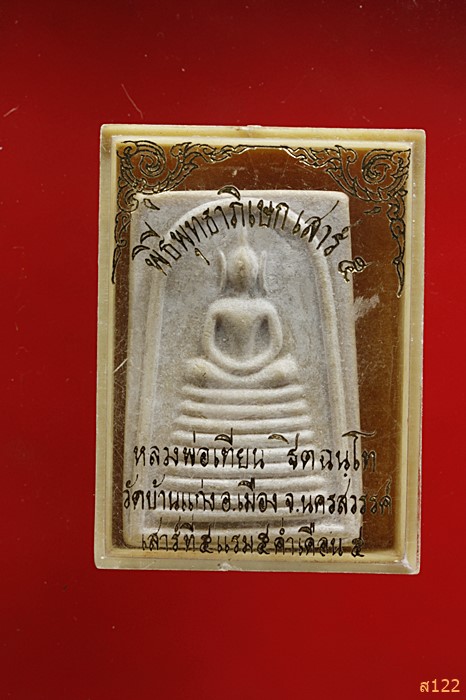 พิธีพุทธาภิเษก เสาร์ ๕
หลวงพ่อเทียน ฐิตฉนฺโท
วัดบ้านแก่ง อ.เมือง จ.นครสวรรค์
เสาร์ที่ ๕ แรม ๕ ค่ำ เดือน ๕
ส122